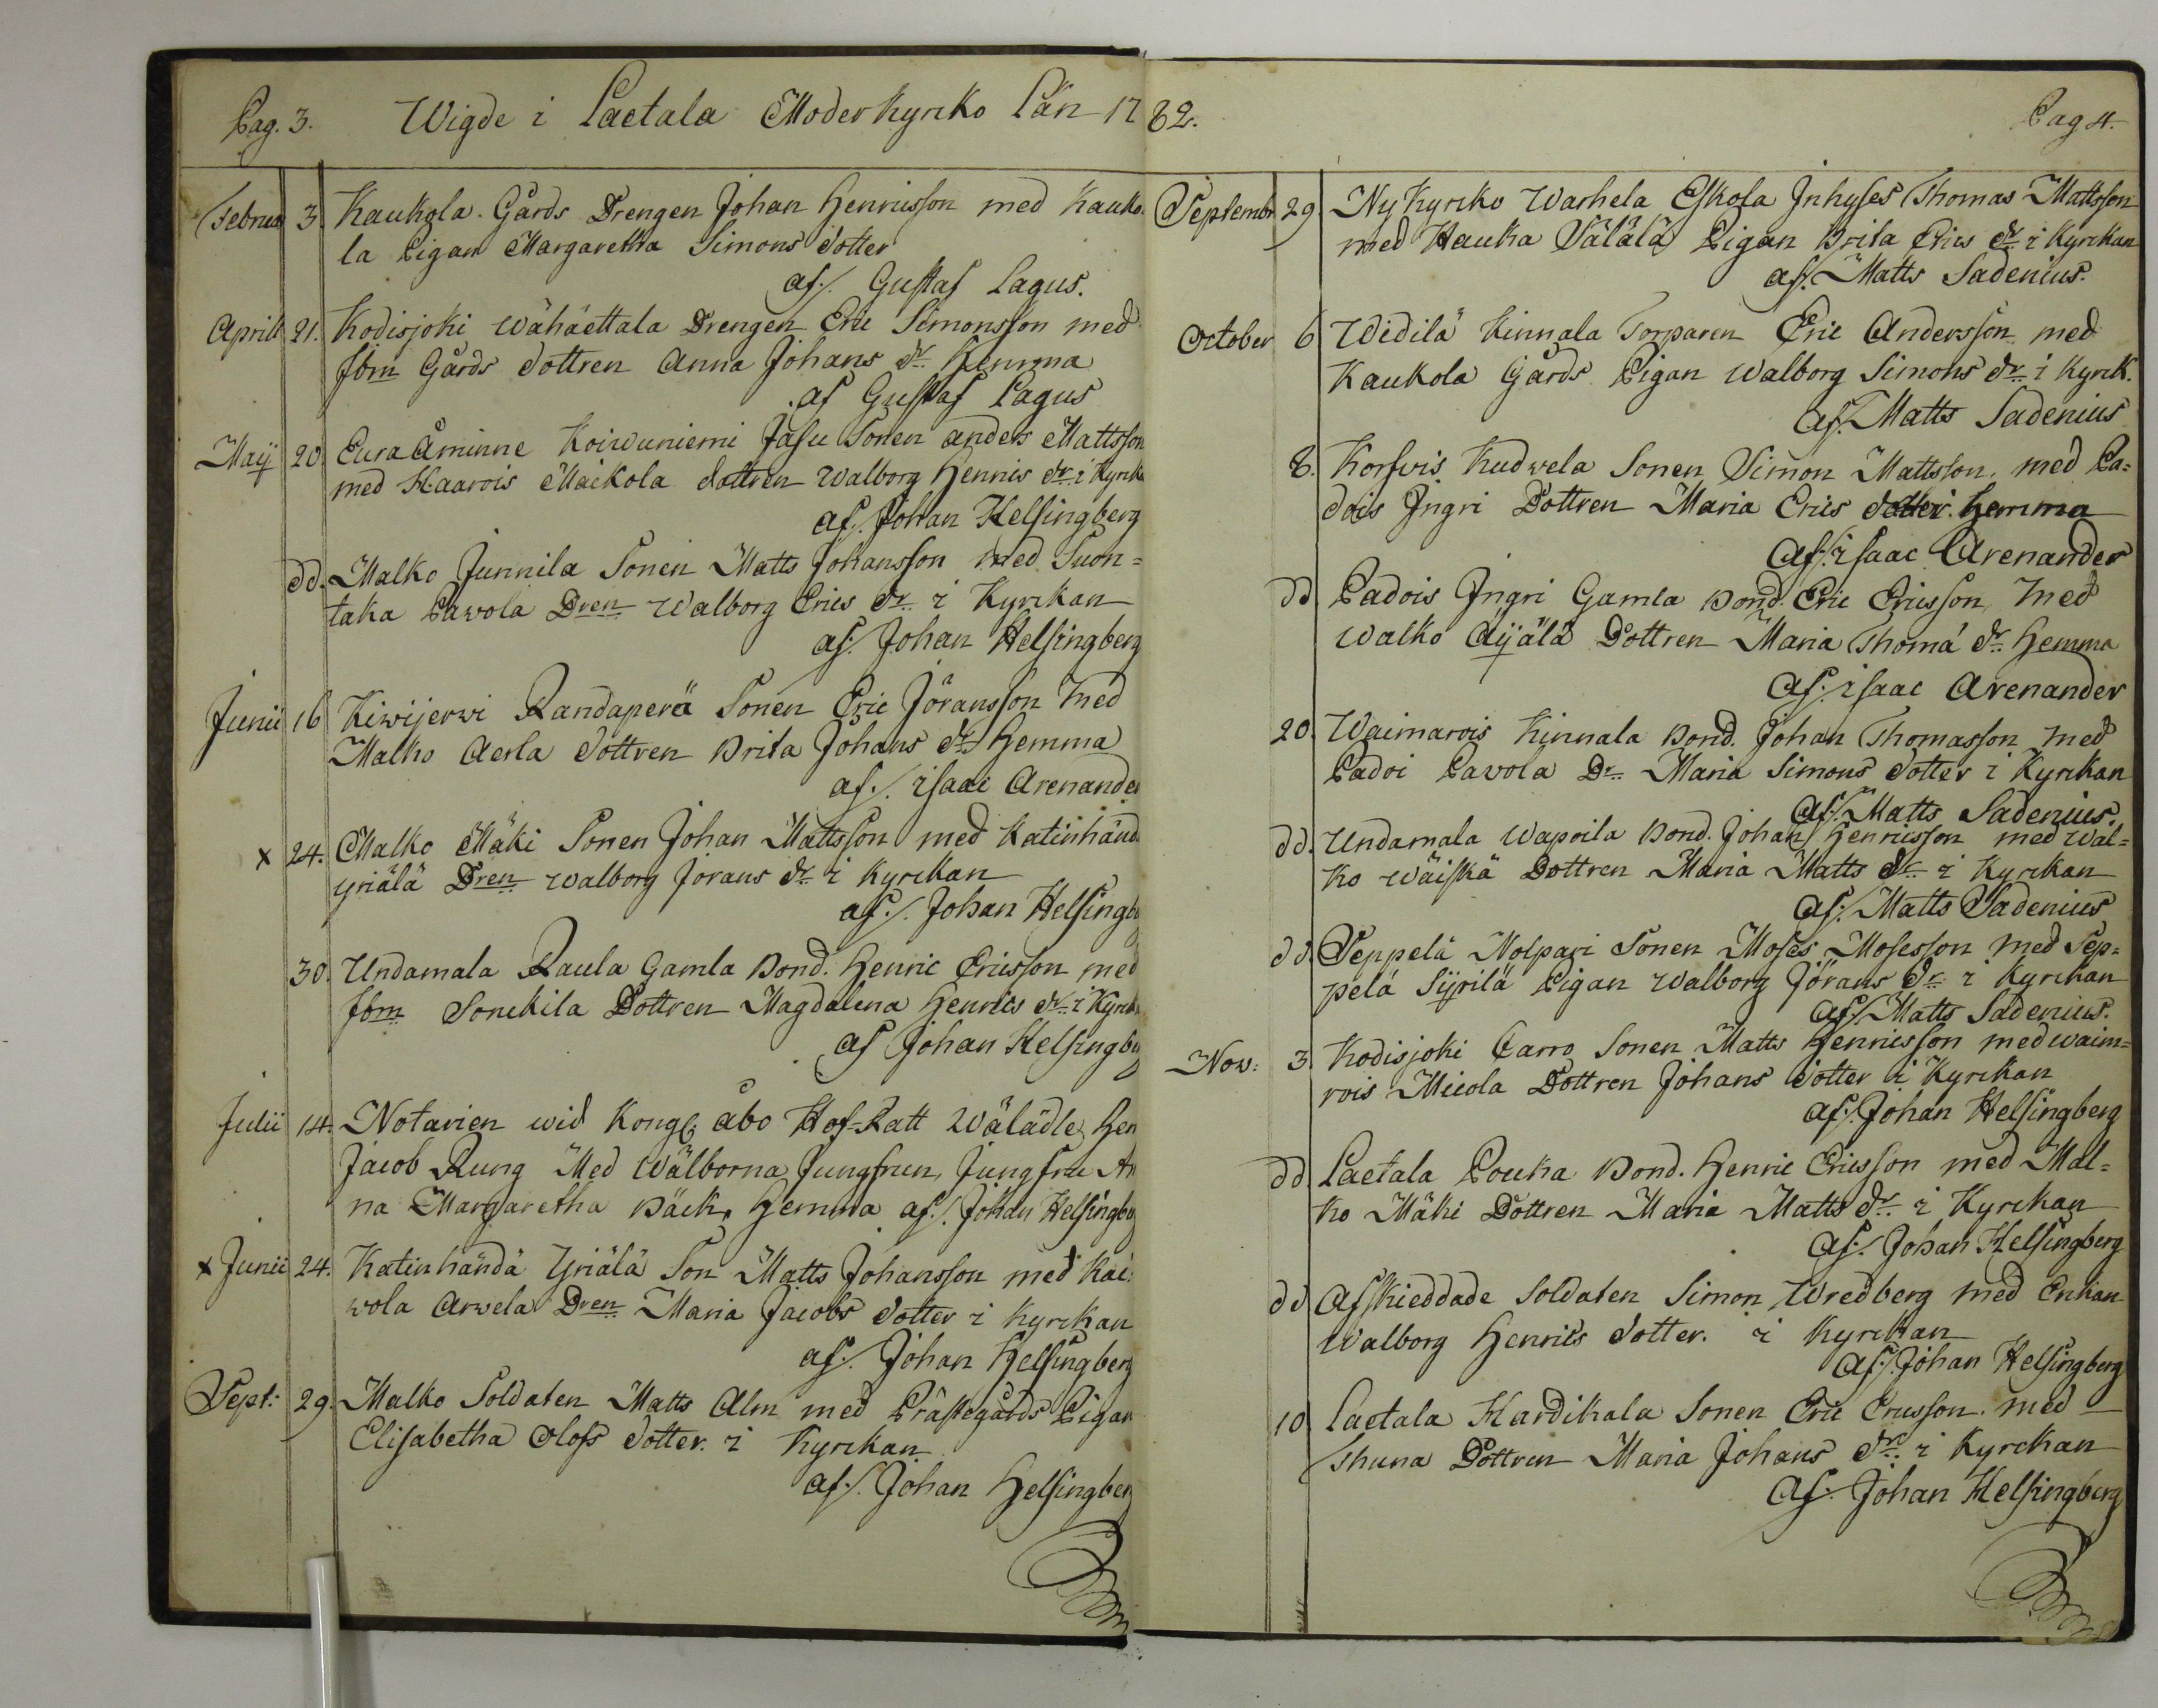 Pag. 3. Wigde i Laetala Moderkyrko Län 17
Februa 3. Kaukola Gårds Drengen Johan Henricsson med Kauko
la Pigan Margaretha Simons dotter
af./. Gustaf Lagus.
Aprill 21. Kodisjoki Wähäettala Drengen Eric Simonsson med
Ibm Gårds dottren Anna Johans dr. Hemma
af Gustaf Lagus
Maij 20. Eura Åminne Koiwuniemi Jasu Sonen anders Mattsson
med Haarois Maickola dottren Walborg Henrics dr. i Kyrcka
af./. Johan Helsingberg
dd. Malko Junnila Sonen Matts Johansson med Suon=
taka Pawola Dren Walborg Erics dr. i Kyrckan
af. Johan Helsingberg
Junii 16 Kiwijerwi Randaperä Sonen Eric Jöransson med
Malko Aerla dottren Brita Johans dr. Hemma
af./. isaac Arenander
x 24. Malko Mäki Sonen Johan Mattsson med Katinhänd
yriälä Dren Walborg Jörans dr. i Kyrckan
af./. Johan Helsingb
30. Undamala Raula Gamla Bond. Henric Ericsson med
Ibm Sonckila Dottren Magdalena Henrics dr. i Kyrck
af Johan Helsingb
Julii 14. Notarien wid Kongl. åbo Hof-Ratt Wälädle Her
Jacob Rung Med Wälborna Jungfrun, Jungfru An
na Margaretha Bäck, Hemma af./. Johan Helsingb
x Junii 24. Katinhändä Yriälä Son Matts Johansson med Kai
wola Arwela Dren Maria Jacobs dotter i Kyrckan
af./. Johan Helsingberg
Sept: 29. Malko Soldaten Matts Alm med Prästegårds Pigan
Elisabetha Olofs dotter. i Kyrckan
af./. Johan Helsingber
82. Pag 4.
Septembr 29. Ny Kyrcko Warhela Eskola Inhyses Thomas Mattsson
med Hauka Sälälä Pigan Brita Erics dr. i Kyrckan
af. Matts Sadenius.
October 6 Widilä Kinnala Torparen Eric Andersson med
Kaukola Gårds Pigan Walborg Simons dr. i Kyrck.
af. Matts Sadenius
8. Korfvis Kudwela Sonen Simon Mattsson. med Pa=
dois Ingri Dottren Maria Erics dotter. Hemma
af. isaac Arenander
dd. Padois Ingri Gamla Bond. Eric Ericsson, med
Walko Aijälä Dottren Maria Thomä dr. Hemma
af. isaac Arenander
20. Waimarois Kinnala Bond. Johan Thomasson med
Padoi Pavola Dr. Maria Simons dotter i Kyrckan
af. Matts Sadenius.
dd. Undamala Wapoila Bond. Johan Henricsson med Wal=
ko Wäiskä Dottren Maria Matts dr. i Kyrckan
af. Matts Sadenius
dd. Seppelä Nolpari Sonen Moses Mosesson med Sep=
pelä Sÿrilä Pigan Walborg Jörans dr. i Kyrckan
af. Matts Sadenius.
Now: 3. Kodisjoki Carro Sonen Matts Henricsson med waim=
rois Micola Dottren Johans dotter i Kyrckan
af. Johan Helsingberg
dd. Laetala Pouka Bond. Henric Ericsson med Mal=
ko Mäki Dottren Maria Matts dr. i Kyrckan
af. Johan Helsingberg
dd. Afskieddade Soldaten Simon Wredberg med Enkan
Walborg Henrics dotter. i Kyrckan
af. Johan Helsingberg
10. Laetala Hardikala Sonen Eric Ericsson. med
Thuna Dottren Maria Johans dr. i Kyrckan
af. Johan Helsingberg